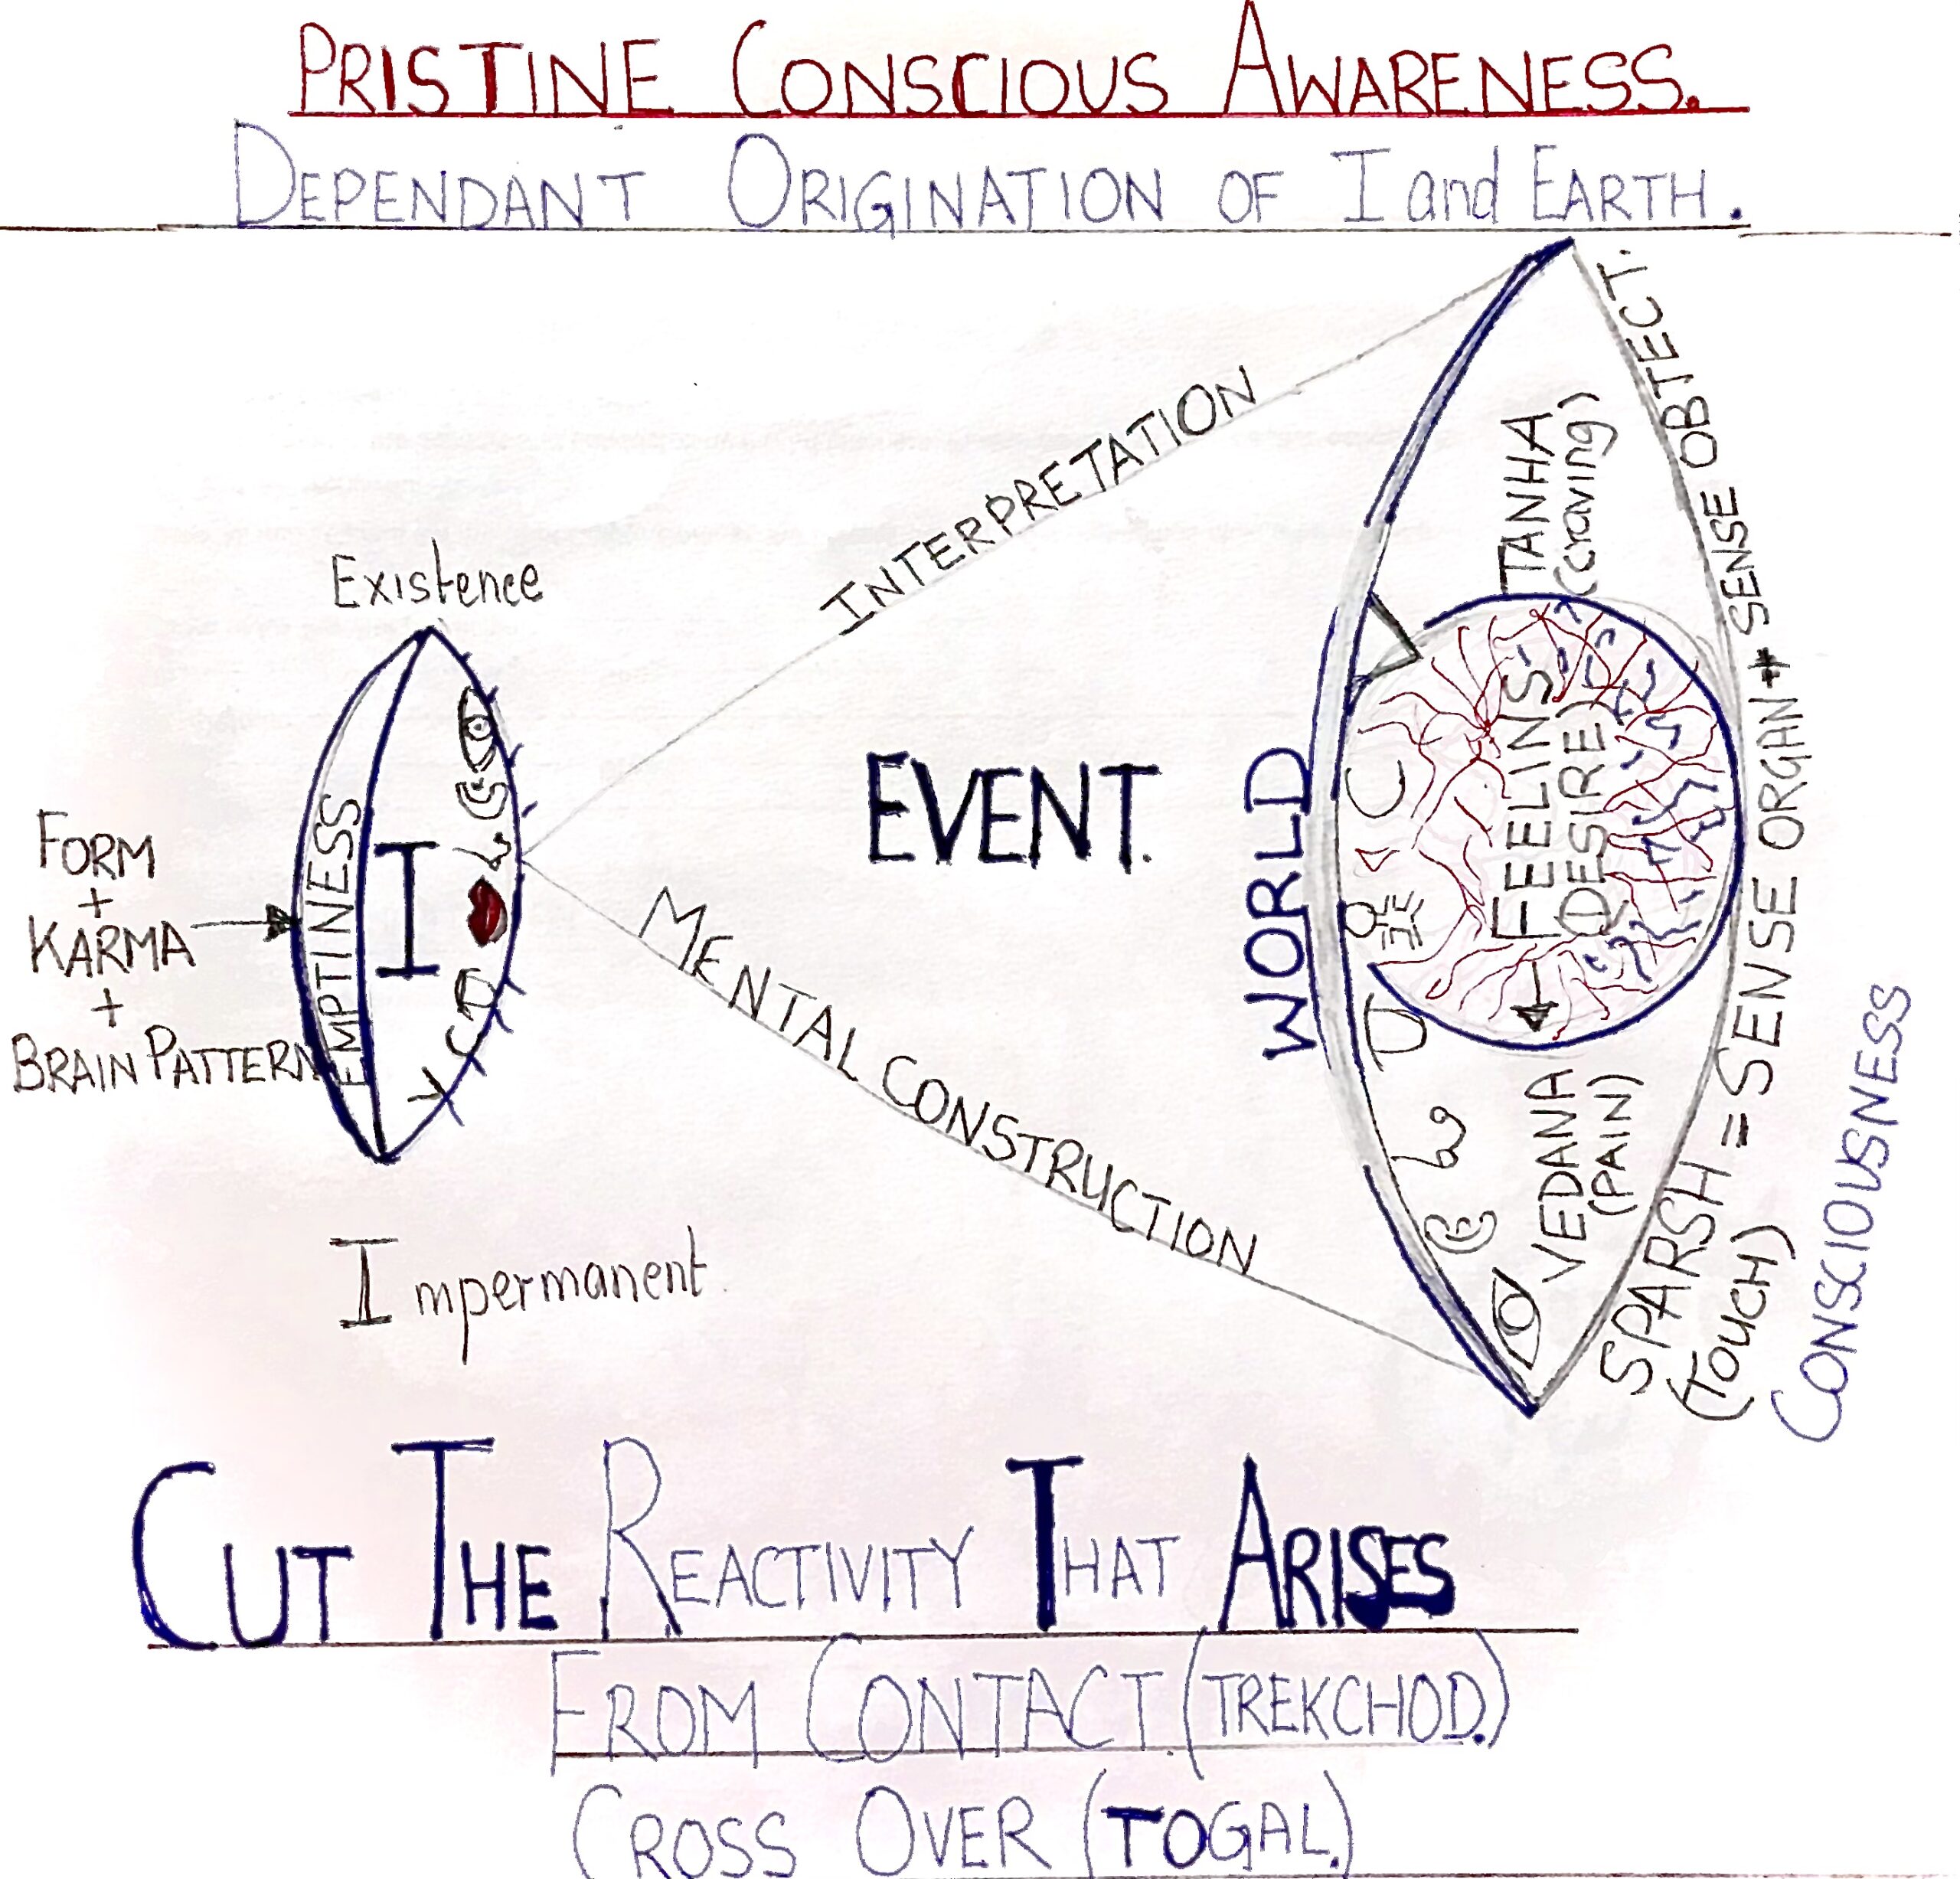 PRISTINE CONSCIOUS AWARENESS.
DEPENDANT ORIGINATION OF I and EARTH.
Existence
FORM
+
KARMA
+
BRAIN PATTERN
EMPTINESS
I
Impermanent
INTERPRETATION
EVENT.
MENTAL CONSTRUCTION
WORLD
TANHA
(craving)
FEELINS
(DESIRE)
VEDANA
(PAIN)
SPARSH = SENSE ORGAN + SENSE OBTECT.
(TOUCH)
CONSCIOUSNESS
CUT THE REACTIVITY THAT ARISES
FROM CONTACT.(TREKCHOD.)
CROSS OVER (TOGAL.)